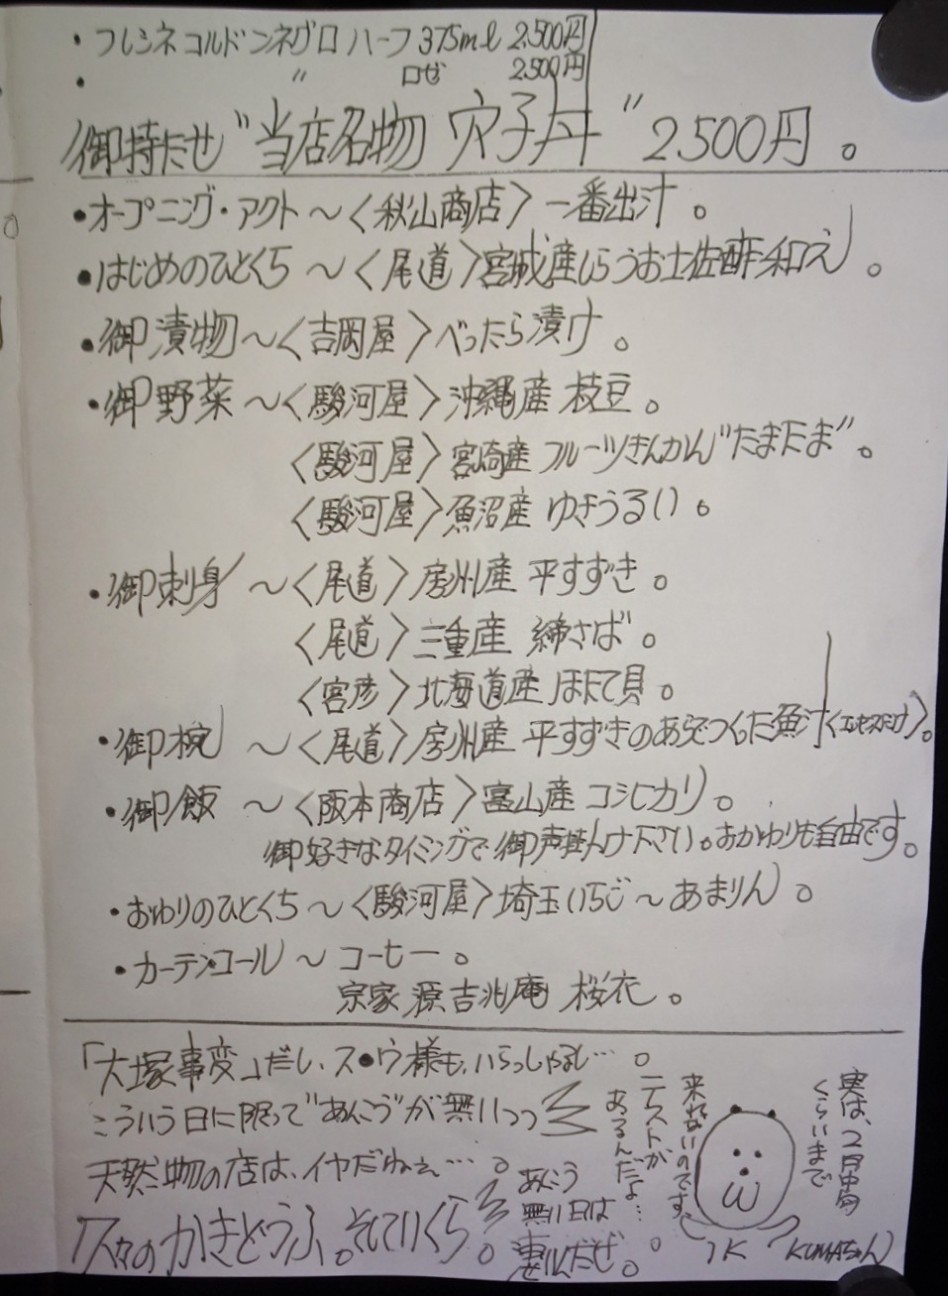 ・フレシネコルドンネグロ ハーフ 375ml 2.500円
・ 〃 ロゼ 2.500円
御持たせ"当店名物 穴子丼" 2.500円。
・オープニング・アクト〜〈秋山商店〉一番出汁。
・はじめのひとくち〜〈尾道〉宮城産しらうお土佐酢和え。
・御漬物〜〈吉岡屋〉べったら漬け。
・御野菜〜〈駿河屋〉沖縄産 枝豆。
〈駿河屋〉宮崎産 フルーツきんかん"たまたま"。
〈駿河屋〉魚沼産 ゆきうるい。
・御刺身〜〈尾道〉房州産 平すずき。
〈尾道〉三重産 締さば。
〈宮彦〉北海道産 ほたて貝。
・御椀 〜〈尾道〉房州産 平すずきのあらでつくった魚汁
・御飯 〜〈阪本商店〉富山産 コシヒカリ。
御好きなタイミングで御声掛け下さい。おかわりも自由です。
・おわりのひとくち〜〈駿河屋〉埼玉いちご〜あまりん。
・カーテンコール〜コーヒー。
宗家 源吉兆庵 桜衣。
「大塚事変」だし、ス●ウ様も、いらっしゃるし…。
こういう日に限って"あんこう"が無いっつ
天然物の店は、イヤだねぇ…。
久々のかきどうふ。そしていくら。
あんこう
無い日は
実は、2月中旬
くらいまで
来れないのです。
ニテストが
あるんだよ…。
1K KUMAちゃん